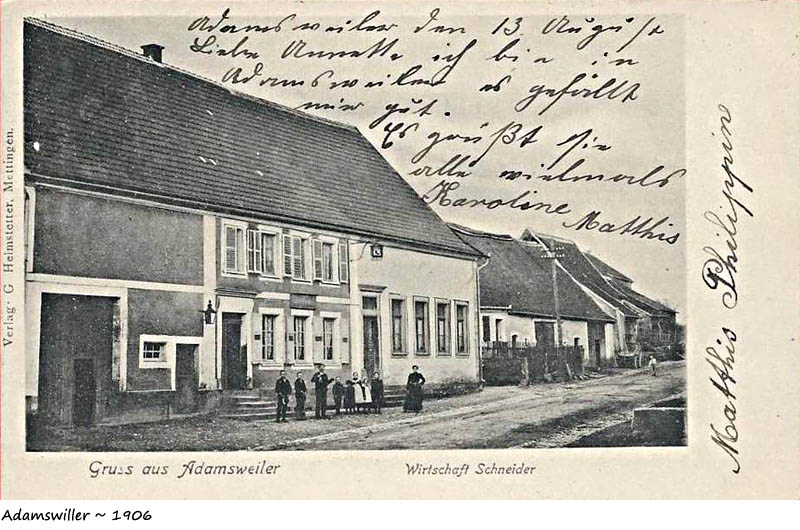 Adamsweiler den 13. August
Liebe Annette ich bin in
Adamsweiler es gefällt
mir gut.
Es grüßt sie
alle vielmals
Karoline Matthis
Matthis Philippine
Verlag G. Heimstetter, Mettingen.
Gruss aus Adamsweiler
Wirtschaft Schneider
Adamswiller ~ 1906